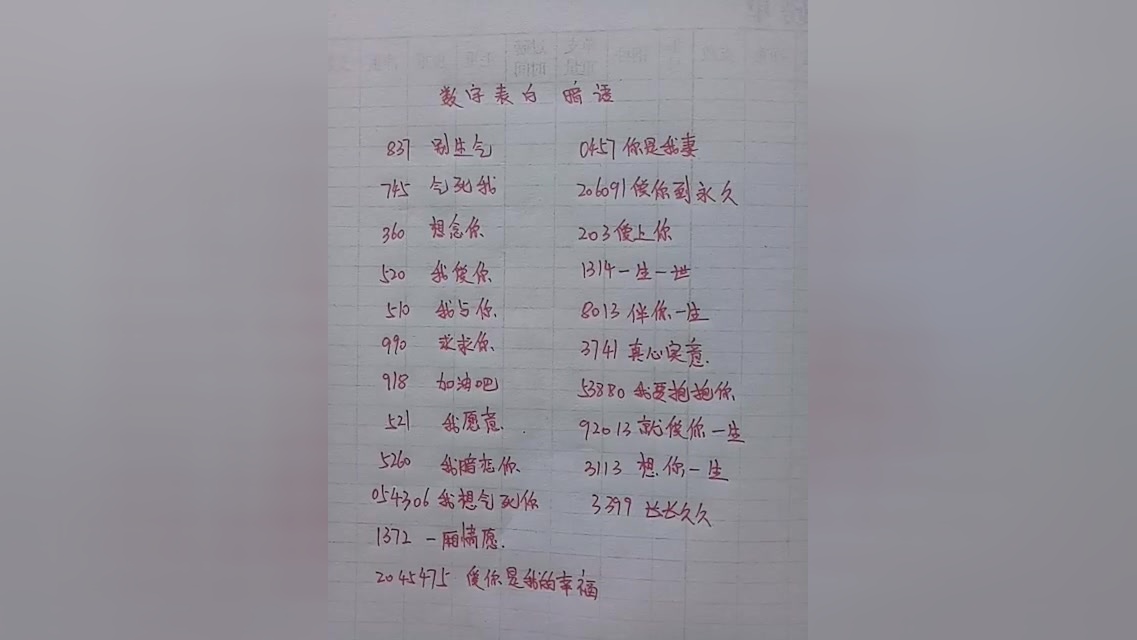 数字表白 暗语
837 别生气
745 气死我
360 想念你
520 我爱你
510 我与你
990 求求你
918 加油吧
521 我愿意
5260 我暗恋你
054306 我想气死你
1372 一厢情愿.
2045475 爱你是我的幸福
0457 你是我妻
206091 爱你到永久
203 爱上你
1314 一生一世
8013 伴你一生
3741 真心实意.
53880 我要抱抱你
92013 就爱你一生
3113 想你一生
3399 长长久久